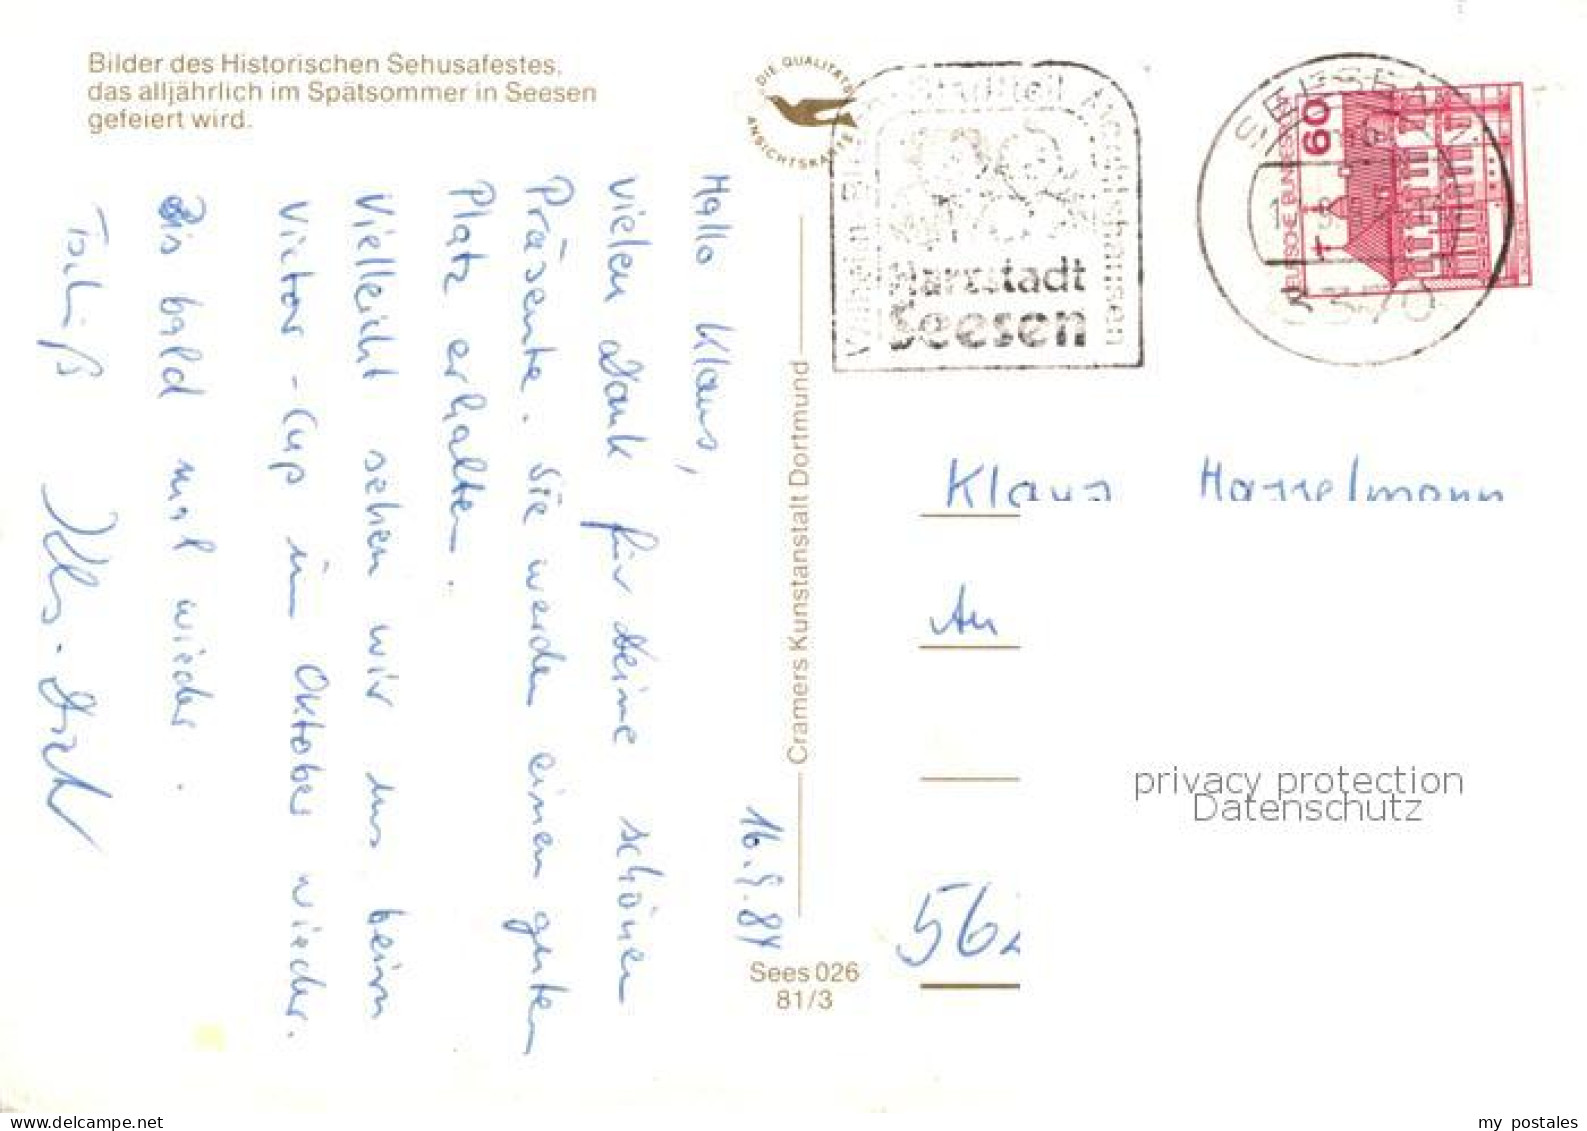 Bilder des Historischen Sehusafestes,
das alljährlich im Spätsommer in Seesen
gefeiert wird.
DIE QUALITÄTS
ANSICHTSKARTE
Stadtteil
Wilhelm
Münchehausen
Harzstadt
Seesen
SEESEN
3370
DEUTSCHE BUNDES
60
16.9.84
Hallo Klaus,
vielen Dank für Deine schönen
Präsente. Sie werden einen guten
Platz erhalten.
Vielleicht sehen wir uns beim
Victor-Cup im Oktober wieder.
Bis bald mal wieder.
Tschüß
Cramers Kunstanstalt Dortmund
Sees 026
81/3
Klaus Hasselmann
An
56
privacy protection
Datenschutz
delcampe.net
my_postales